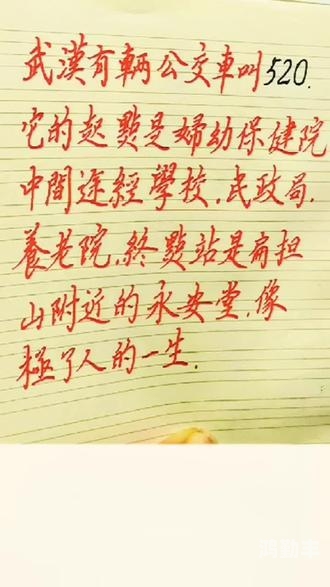 武漢有輛公交車叫520.
它的起點是婦幼保健院
中間途經學校.民政局.
養老院.終點站是扁担
山附近的永安堂.像
極了人的一生.